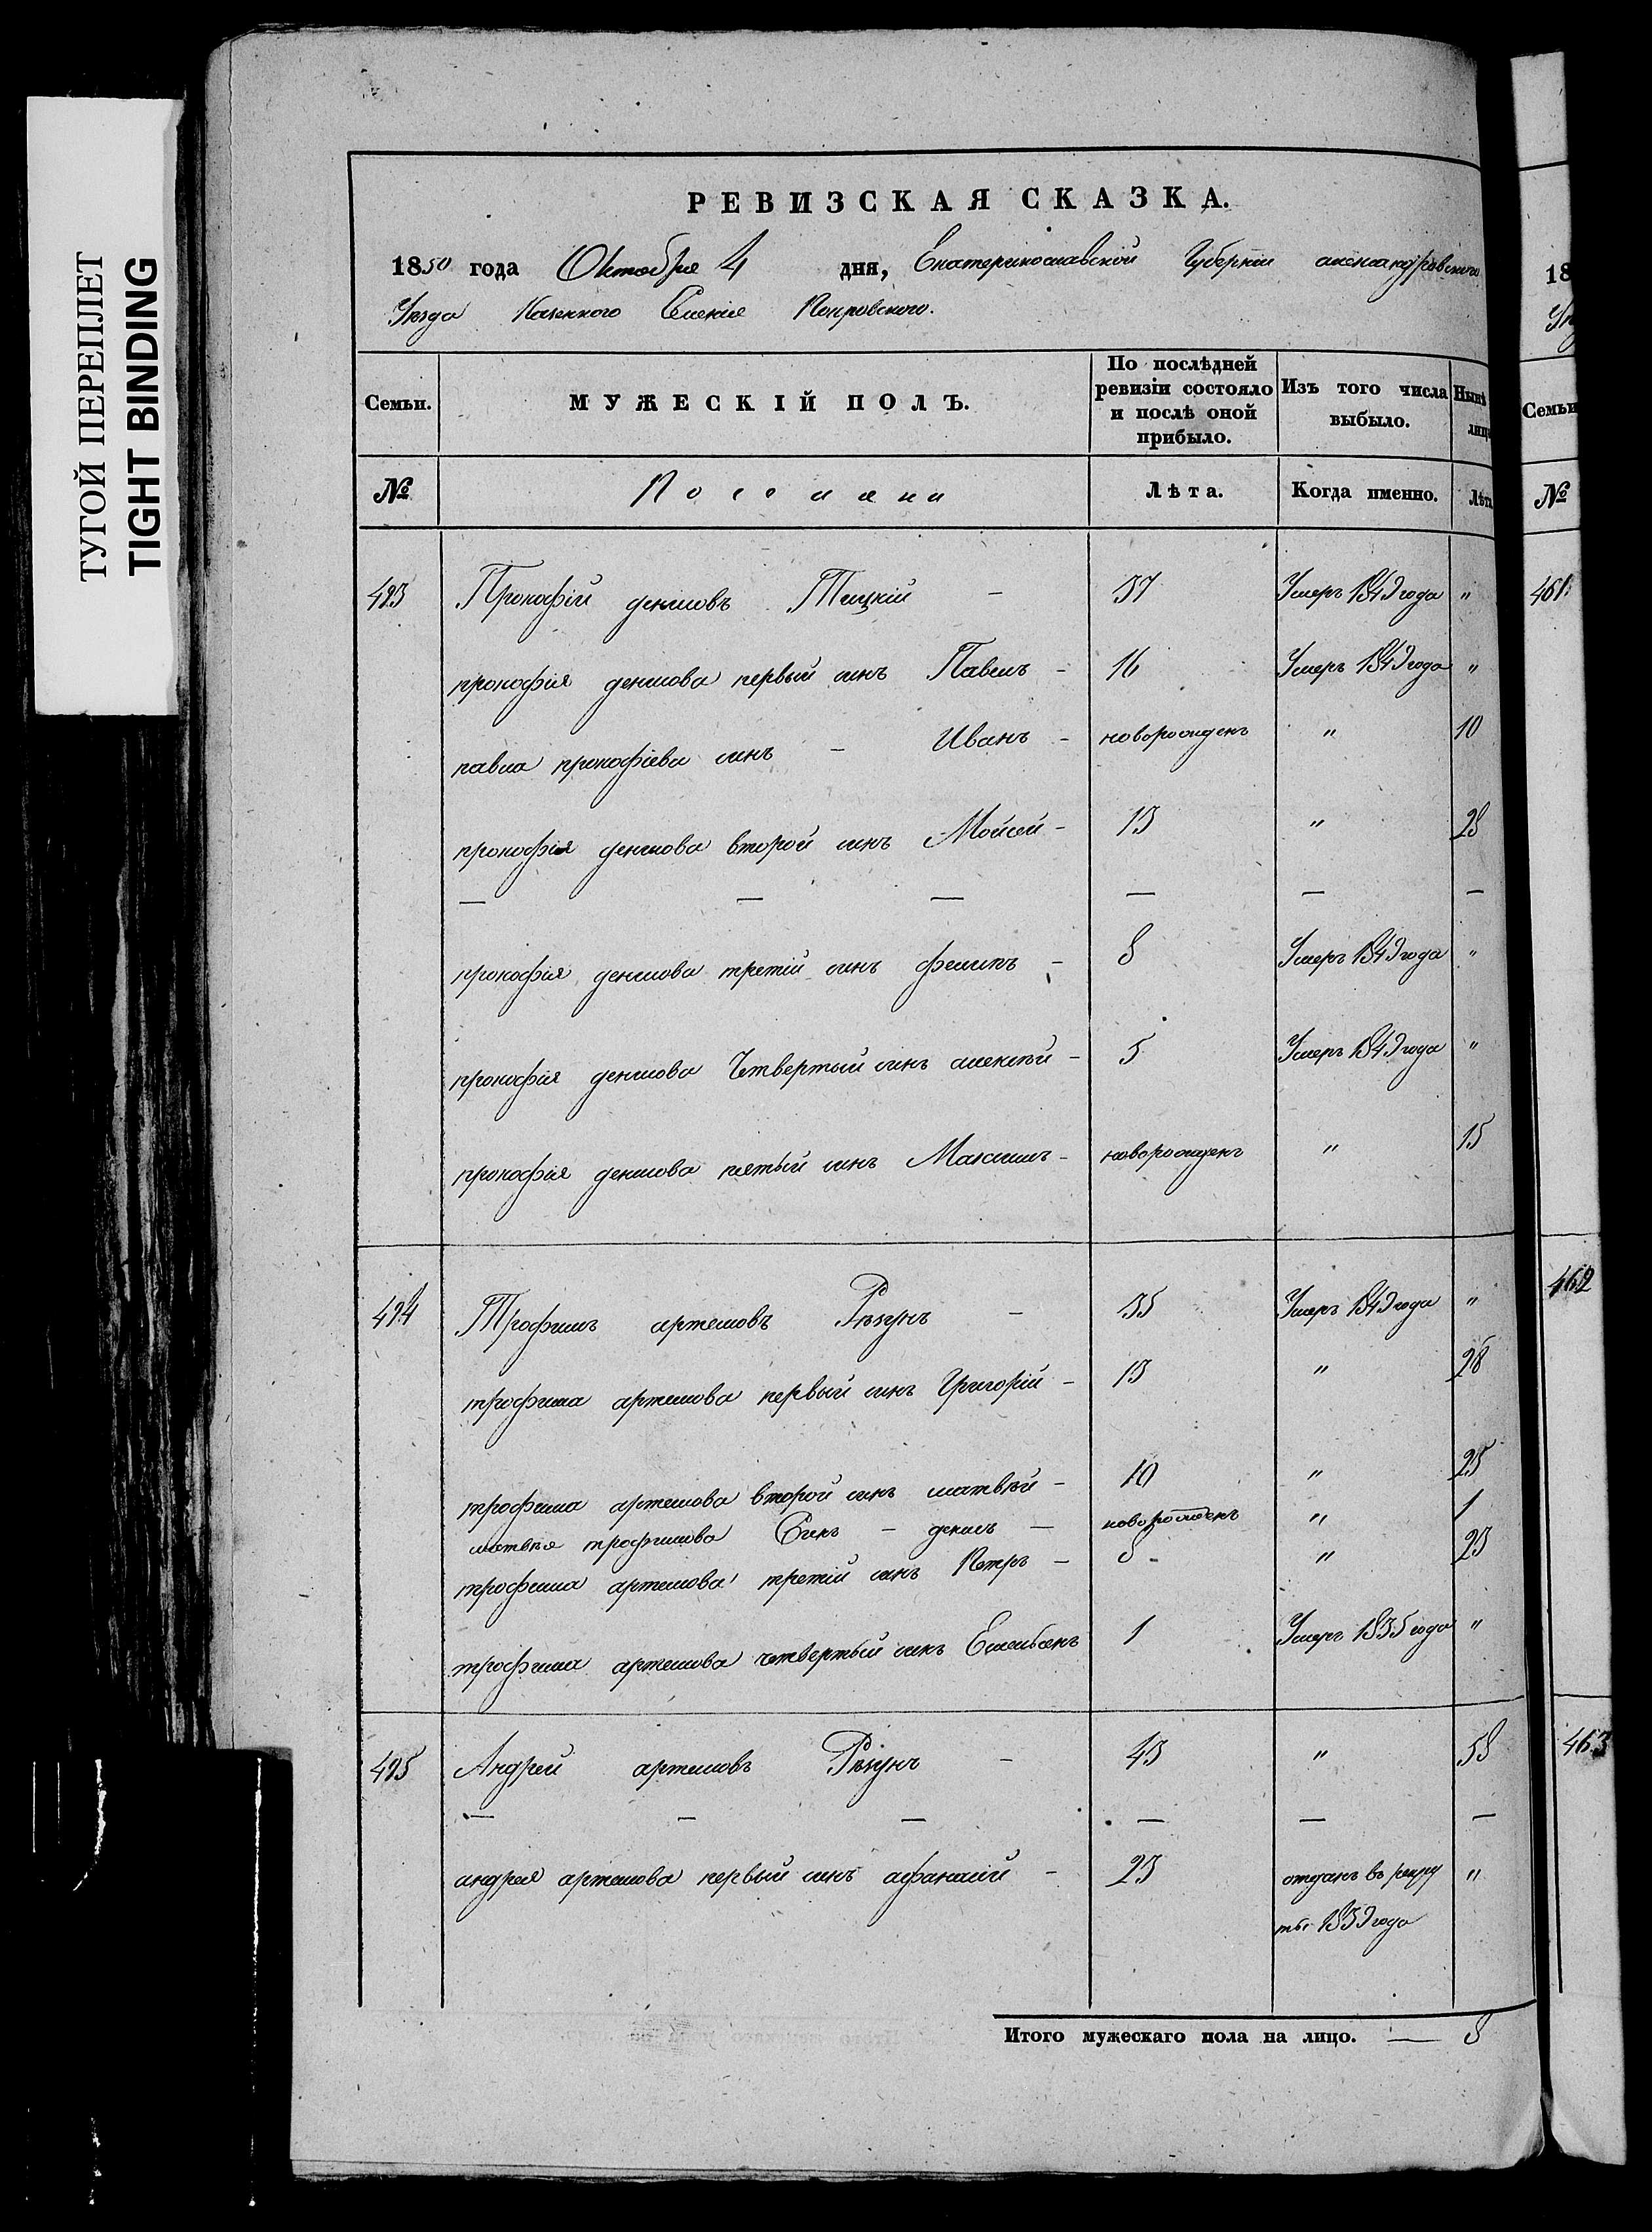 ТУГОЙ ПЕРЕПЛЕТ
TIGHT BINDING
РЕВИЗСКАЯ СКАЗКА.
1850 года Октября 4 дня, Екатеринославской Губернии александровского
Уезда Казенного Селения Покровского.
Семьи. МУЖЕСКІЙ ПОЛЪ. По послѣдней ревизіи состояло и послѣ оной прибыло. Изъ того числа выбыло. Нынѣ лицо
№ Поселяни Лѣта. Когда именно. Лѣта
493 Прокофій денисовъ 37 Умеръ 1849 года "
прокофія денисова первый синъ Павелъ - 16 Умеръ 1849 года "
павла прокофіева синъ - Иванъ - новорожденъ " 10
прокофія денисова второй синъ Мойсей - 13 " 28
— — — — — —
прокофія денисова третій синъ филипъ - 8 Умеръ 1849 года "
прокофія денисова Четвертый синъ алексѣй - 5 Умеръ 1849 года "
прокофія денисова пятый синъ Максимъ - новорожденъ " 15
494 Трофимъ артемовъ Рѣзунъ - 35 Умеръ 1849 года "
трофима артемова первый синъ Григорій - 13 " 28
трофима артемова второй синъ матвѣй - 10 " 25
матвѣя трофимова Синъ - денисъ - новорожденъ " 1
трофима артемова третій синъ Петръ - 8 - " 23
трофима артемова четвертый синъ Емельянъ 1 Умеръ 1835 года "
495 Андрей артемовъ Рѣзунъ - 43 " 58
— — — — — —
андрея артемова первый синъ афанасій - 23 отданъ въ рекру "
ты 1839 года
Итого мужескаго пола на лицо. — 8
18
Семьи
№
461
462
463